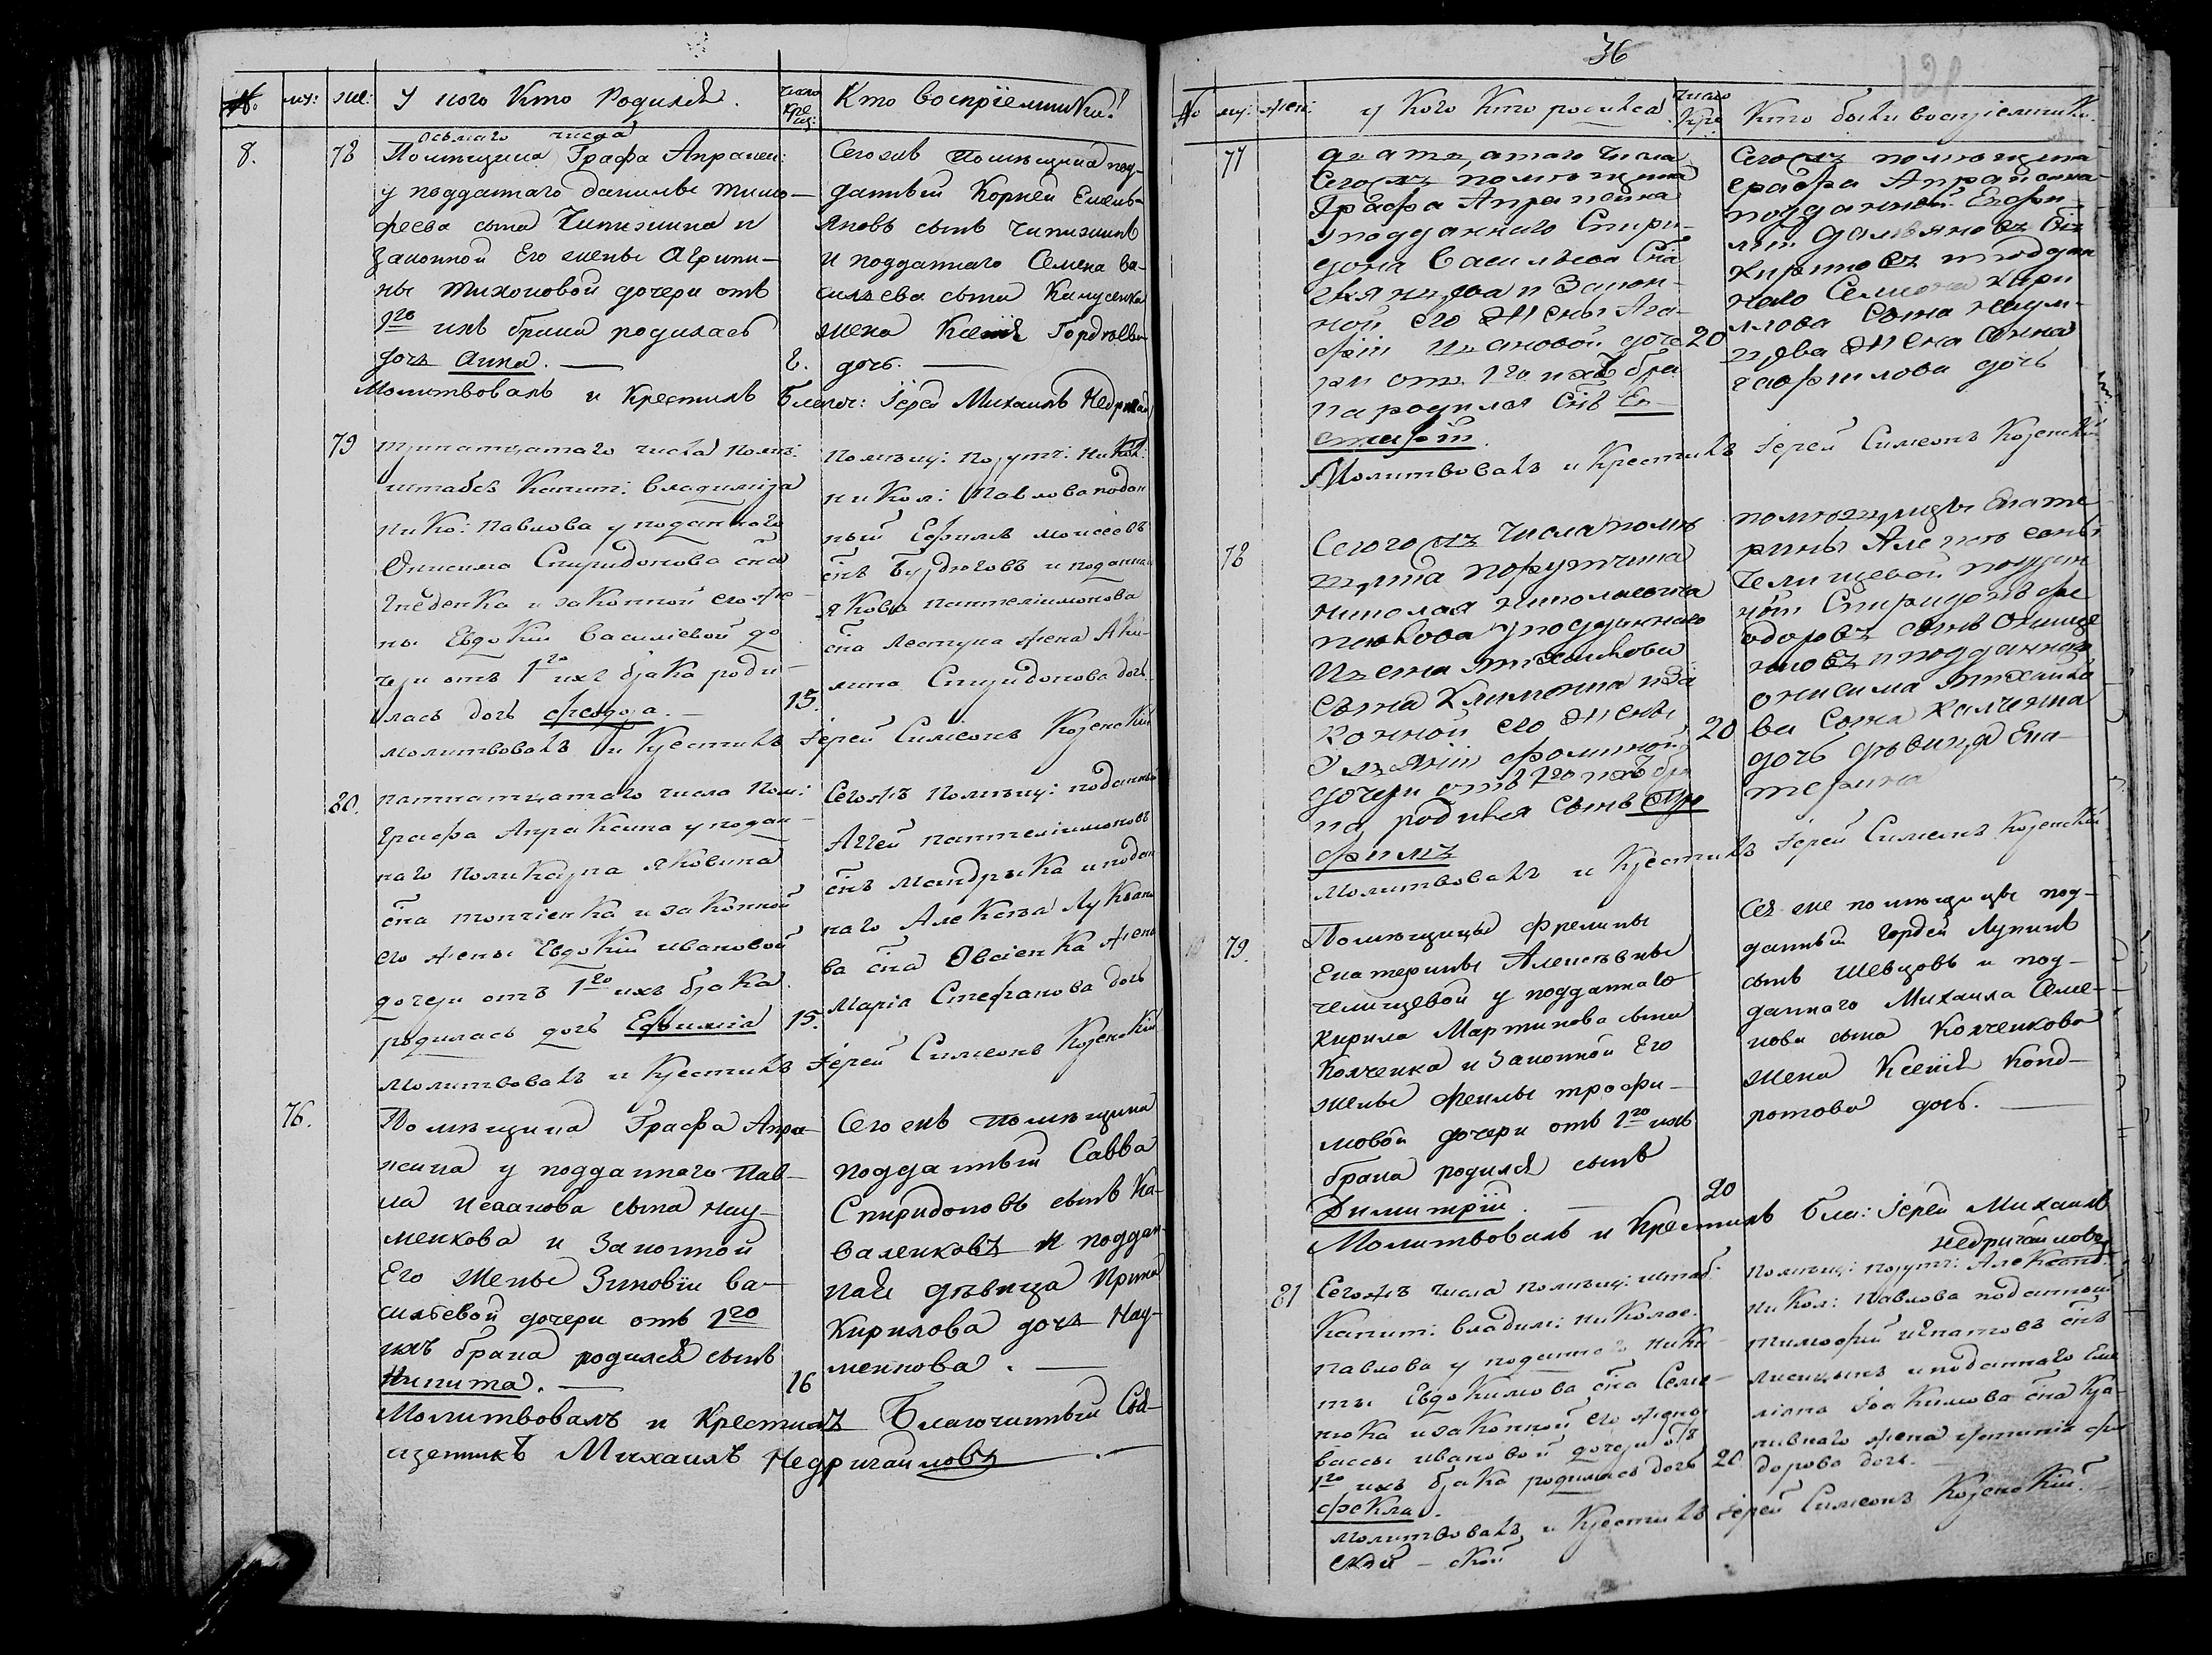 №. му: же: У кого Кто Родился. число кре щ: Кто воспріемники?
8. 78
осьмаго числа
Помѣщика Графа Апракси:
у подданнаго данилы тимо-
феева сына Чепижика и
Законной Его жены Агрипи-
ны тихоновой дочери отъ
1го ихъ брака родилась
дочь Анна. — 8.
Сегожъ помѣщика под-
данный Корней Емель-
яновъ сынъ Чепижикъ
и подданнаго Семена ва-
сильева сына
жена Ксенія Гордѣева
дочь. —
Молитвовалъ и Крестилъ Благоч: Іерей Михаилъ
79
тринатцатаго числа Помѣ:
штабсъ Капит: владиміра
Нико: Павлова у поданнаго
Онисима Спиридонова сна
Гнеденка и законной его же-
ны Евдокіи Василіевой до
чери отъ 1го ихъ брака роди-
лась дочь Феодора. — 15.
Помѣщ: Порутч:
Никол: Павлова подан
ный Ефимъ моисеовъ
снъ и поданна
якова пантелиимонова
сна жена Аки-
лина Спиридонова дочь
молитвовалъ и Крестилъ Іерей Симеонъ Козенскій
80.
пятнатцатаго числа Пом:
Графа Апраксина у подан-
наго Поликарпа яковина
сна и законной
его жены Евдокіи ивановой
дочери отъ 1го ихъ брака
родилась дочь Ефимія 15.
Сегожъ помѣщ: поданный
Аггей пантелиимоновъ
снъ Мандрыка и подан
наго Алексѣя Лукьяно
ва сна Овсіенка жена
Марія Стефанова дочь
молитвовалъ и Крестилъ Іерей Симеонъ Козенскій
76.
Помѣщика Графа Апра-
ксина у подданнаго Пав-
ла Иванова сына Нау-
менкова и Законной
Его жены Зиновіи ва-
сильевой дочери отъ 1го
ихъ брака родился сынъ
Никита. — 16
Сегожъ помѣщика
подданный Савва
Спиридоновъ сынъ Ка-
валенковъ и поддан-
ная дѣвица Ирина
Кирилова дочь Нау-
менкова. —
Молитвовалъ и Крестилъ Благочинный Свя-
щенникъ Михаилъ Недригайловъ
36
128
№ му: жен: у Кого Кто родился число Кре Кто были воспріемники
77
дватцатаго числа
Сегожъ помѣщика
Графа Апраксина
у подданнаго Спири-
дона Василіева Сна
и Закон-
ной его Жены Ага-
фіи Ивановой доче 20
ри отъ 1го ихъ бра
ка родился Снъ Ев
стафій
Сегожъ помѣщика
графа Апраксина
подданный
Сна
и поддан
наго Семиона Кири
лова Сына Наум
жена Анна
гаврилова дочь
Молитвовалъ и Крестилъ Іерей Симеонъ Козенскій
78
Сегогожъ числа помѣ
щика порутчика
николая николаевича
павлова у подданнаго
михайлова
сына Климонка и за
конной его жены 20
фоминой
дочери отъ 1го ихъ бра
ка родился сынъ Тро
фимъ
помѣщицы Екате
рины Алексѣевны
Челищевой поддан
ный Спиридонъ фе
одоровъ сынъ
и подданнаго
онисима михайло
ва сына Калченка
дочь дѣвица Ека-
терина
молитвовалъ и Крестилъ Іерей Симеонъ Козенскій
79.
Помѣщицы Фрелины
Екатерины Алексѣевны
челищевой у подданнаго
кирила Мартинова сына
Колченка и Законной Его
жены Феклы трофи-
мовой дочери отъ 1го ихъ
брака родился сынъ
Димитрій. — 20
Сей же помѣщицы под-
данный Гордей Лукинъ
сынъ Шевцовъ и под-
даннаго Михаила Семе-
нова сына Колченкова
жена Ксенія Конд-
ратова дочь. —
Молитвовалъ и Крестилъ Бла: Іерей Михаилъ
Недригайловъ
81
Сегожъ числа помѣщ: штаб:
Капит: владим: николае:
павлова у поданнаго ники
ты Евдокимова сна Семе-
нюка и законной его жены
вассы ивановой дочери отъ
1го ихъ брака родилась дочь 20
Фекла.
Помѣщ: порутч: Александ:
никол: Павлова поданный
тимофей игнатовъ снъ
Лисицынъ и поданнаго Еме
ліяна Іоакимова сна
жена фео
дорова дочь. —
молитвовалъ и Крестилъ Іерей Симеонъ Козенскій.